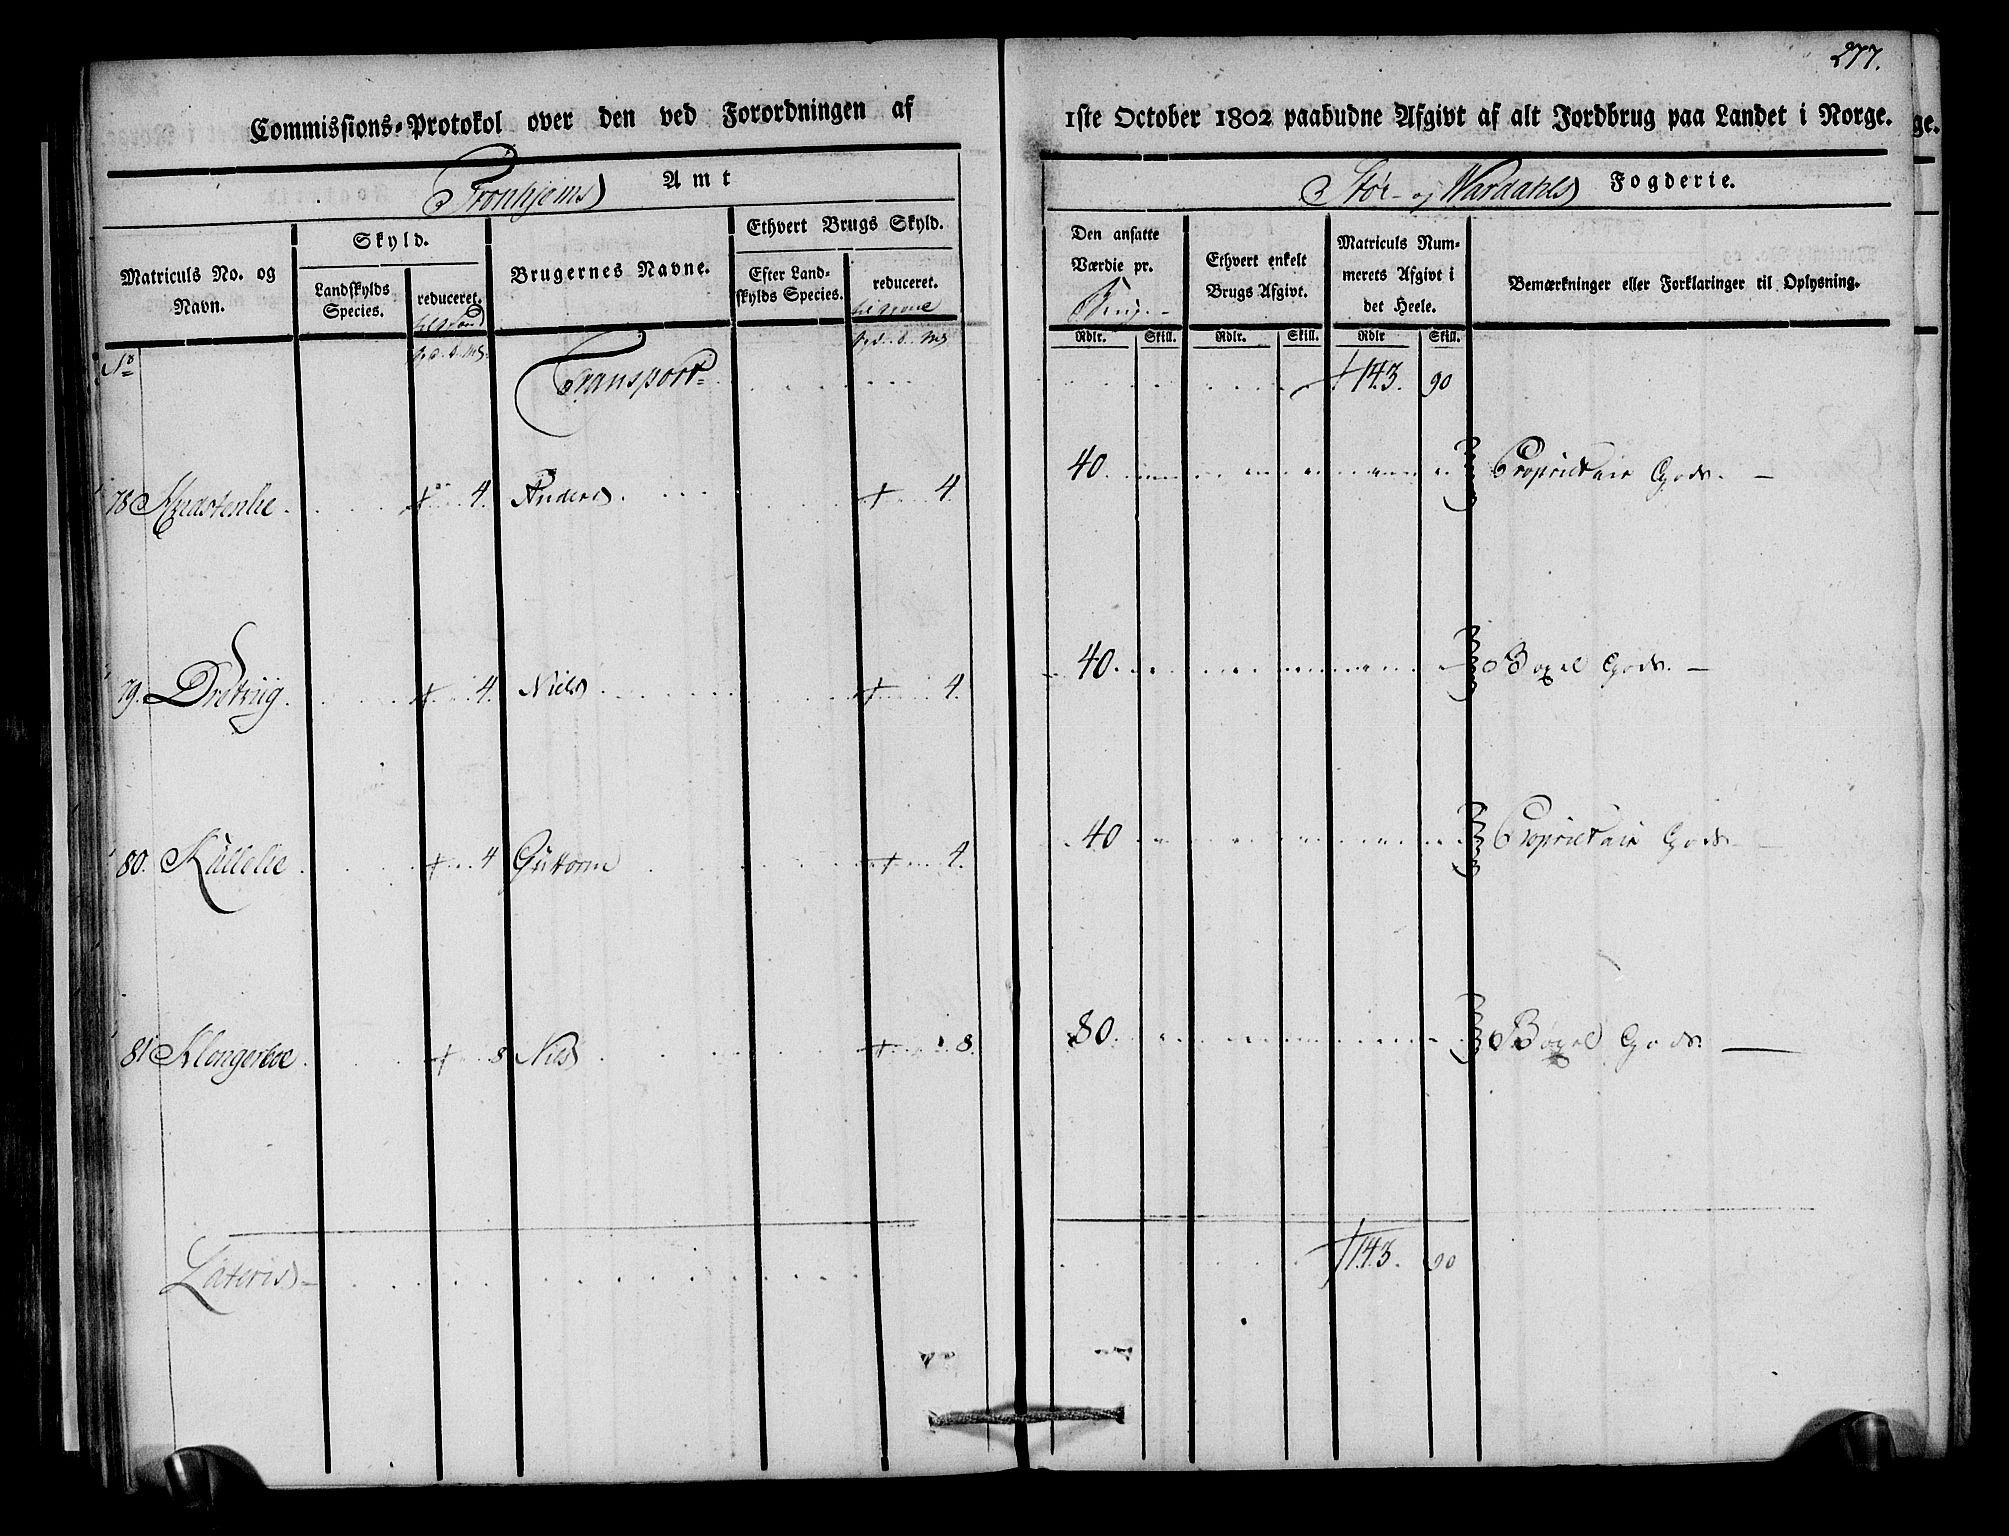 277.
Commissions-Protokol over den ved Forordningen af 1ste October 1802 paabudne Afgivt af alt Jordbrug paa Landet i Norge.
Tronhjems Amt
Stør- og Wærdahls Fogderie.
Matriculs No. og Navn.
Skyld.
Landskylds Species.
reduceret.
Brugernes Navne.
Ethvert Brugs Skyld.
Efter Landskylds Species.
reduceret.
Den ansatte Værdie pr. Brug.
Ethvert enkelt Brugs Afgivt.
Matriculs Nummerets Afgivt i det Heele.
Bemærkninger eller Forklaringer til Oplysning.
Rdlr. Skill. Rdlr. Skill. Rdlr Skill.
No
Transport 1143. 90
78 4. Anders 4. 40. Proprietair Gods.
79. 4. Niels 4. 40. Bøxel Gods.
80. Kullelie 4 Guttorm 4. 40 Proprietair Gods
81 Klengerboe 8 Nils 8. 80. Bøxel Gods.
Lateris 1143. 90